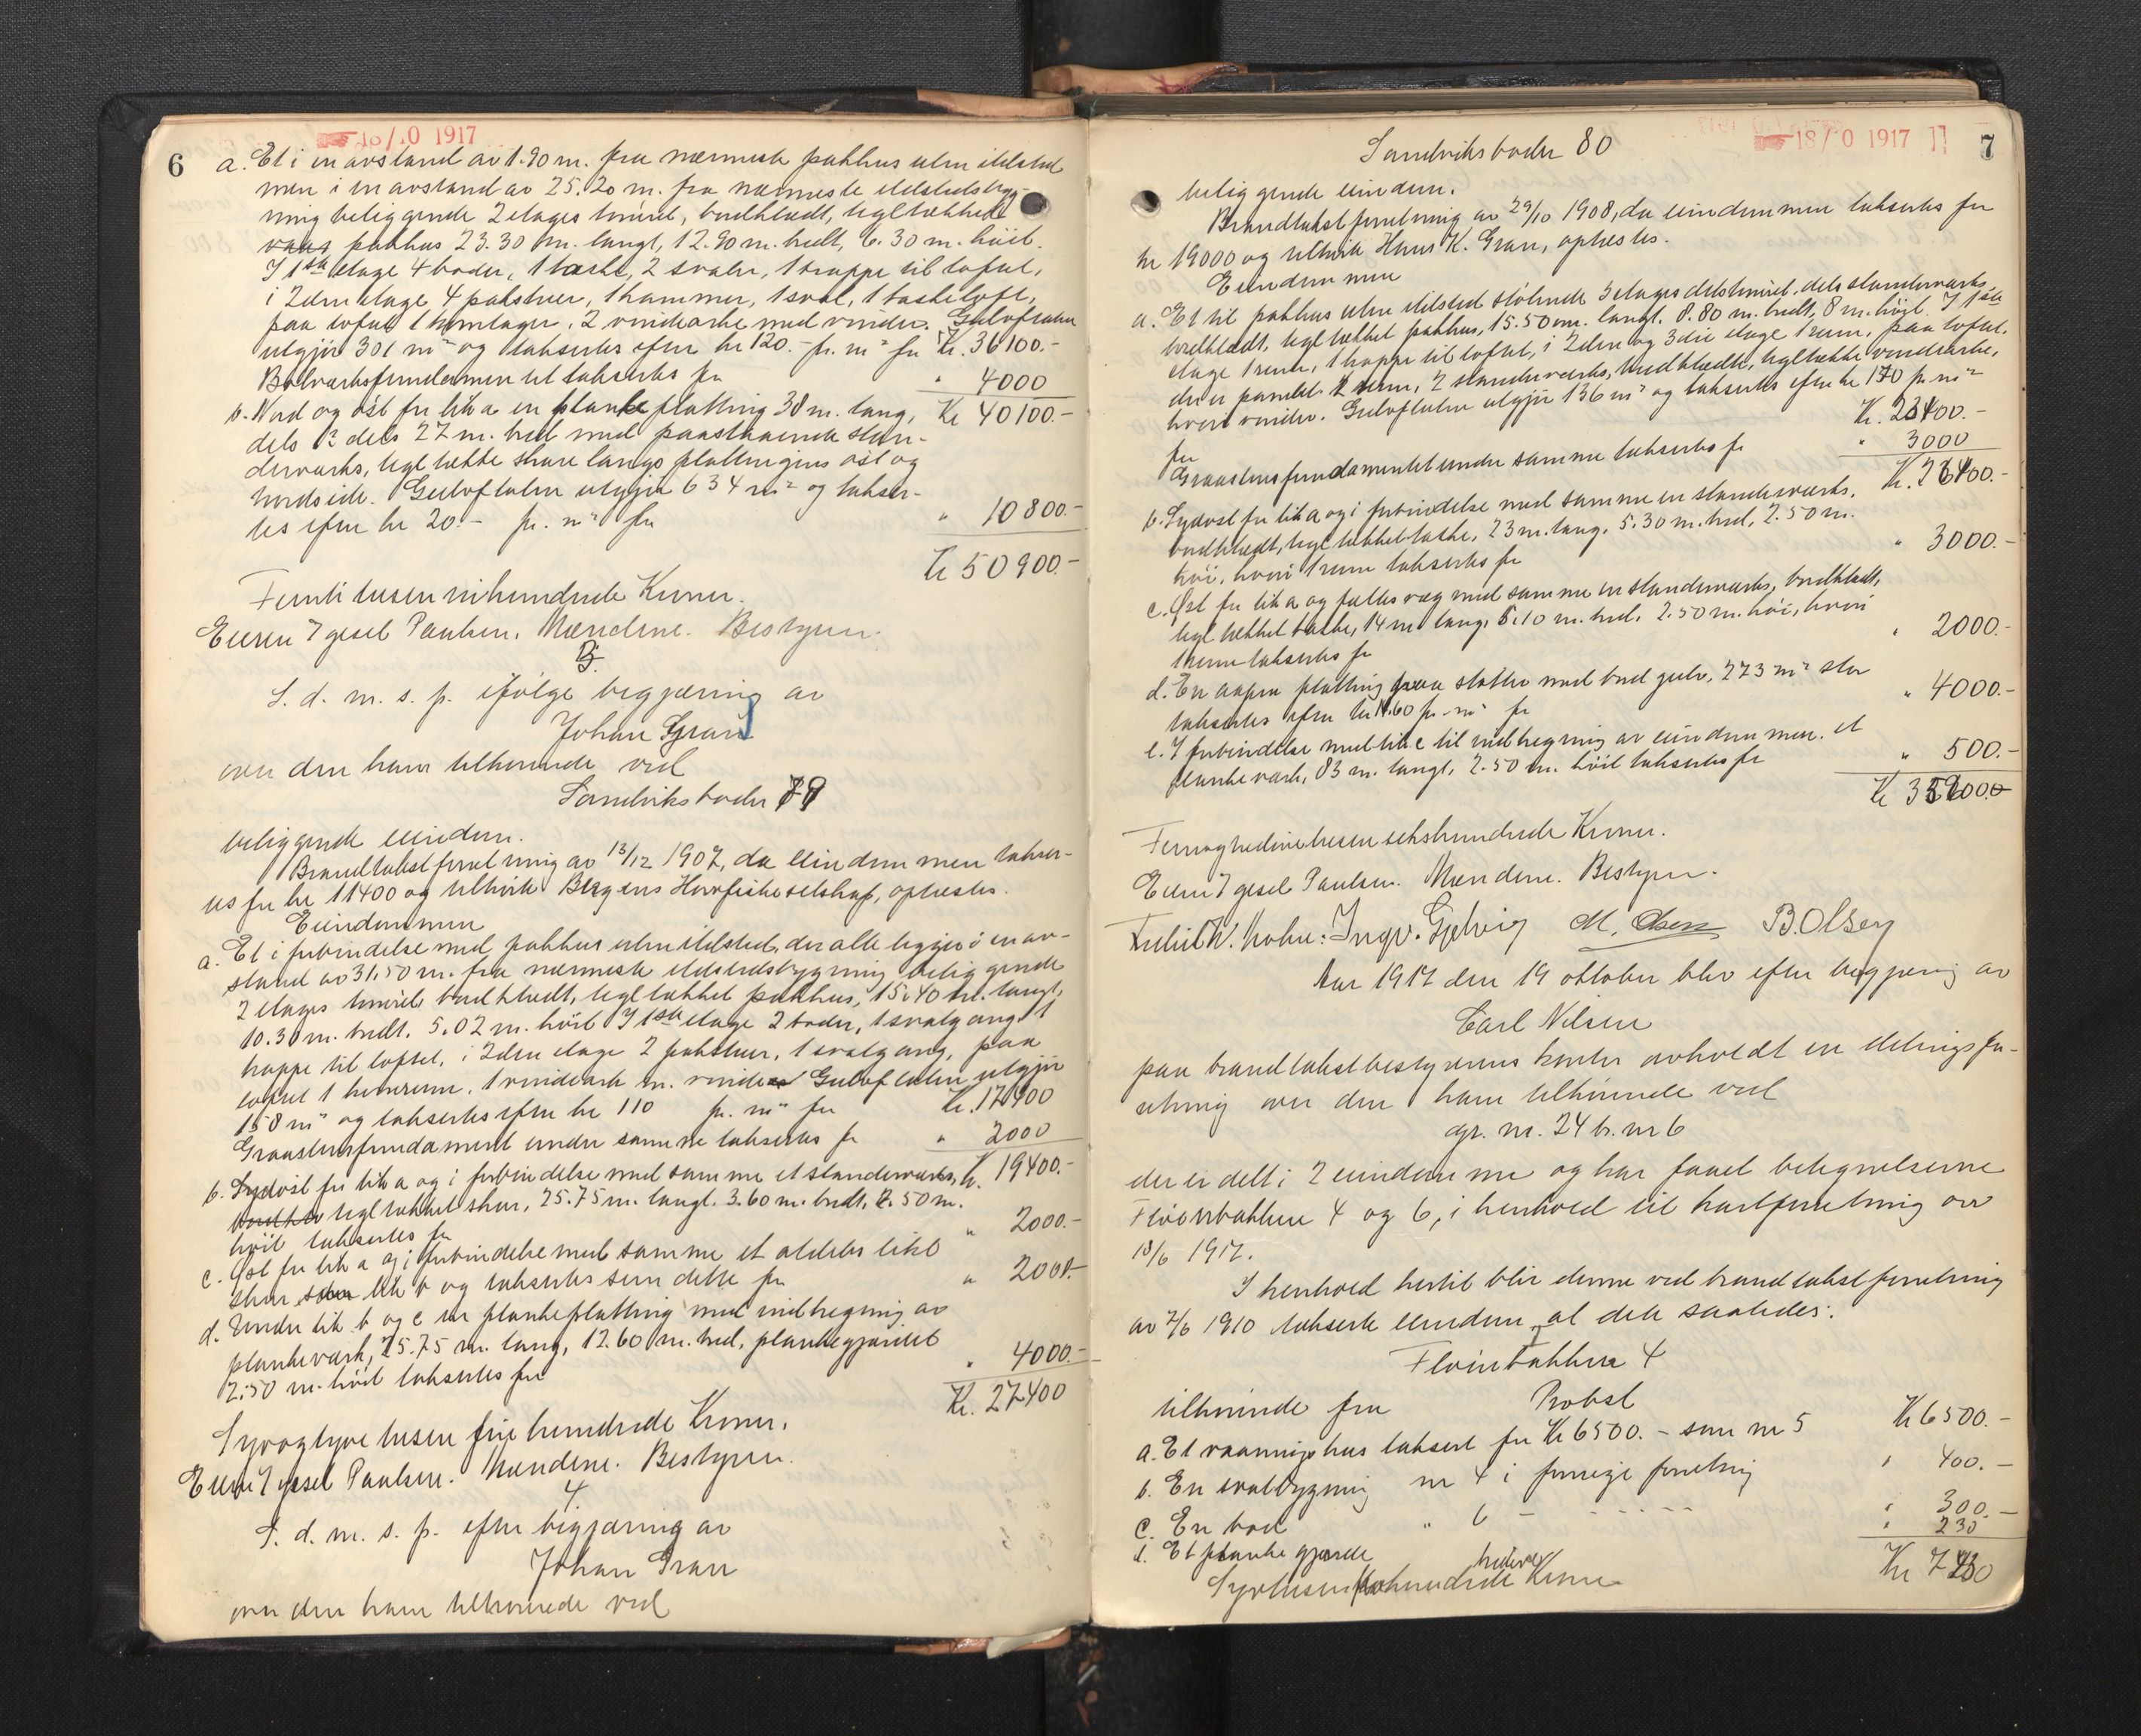 18/10 1917
6
a. Et i en avstand av 1.90 m. fra nærmeste pakhus uten ildsted
men i en avstand av 25.20 m. fra nærmeste ildstedsbyg-
ning beliggende 2 etages tømret, bordklædt, tegltækket
pakhus 23.30 m. langt, 12.90 m. bredt, 6.30 m. høit.
I 1ste etage 4 boder, 1 taske, 2 svaler, 1 trappe til loftet,
i 2den etage 4 pakstuer, 1 kammer, 1 sval, 1 taskeloft,
paa loftet 1 hemlager. 2 vindearke med vinder. Gulvflaten
utgjør 301 m² og takseres efter kr 120.- pr. m² for Kr. 36100.-
Bolverksfundamentet takseres for " 4000
Kr 40100.-
b. Nord og øst for litr a en plankeplatting 38 m. lang,
dels 12 dels 27 m. bred med paastaaende stan-
derverks, tegltækte skure langs plattingens øst og
nordside. Gulvflaten utgjør 634 m² og takser-
es efter kr 20.- pr. m² for " 10800.-
Kr 50900.-
Femti tusen nihundrede Kroner.
Eieren Igesel Paulsen. Mændene. Bestyren.
3.
S. d. m. s. p. ifølge begjæring av
Johan Gran
over den ham tilhørende ved
Sandviksboder 79
beliggende eiendom.
Brandtakstforretning av 13/12 1907, da eiendommen takser-
tes for kr 11400 og tilhørte Bergens Havfiskeselskap, oplæstes.
Eiendommen
a. Et i forbindelse med pakhus uten ildsted, der alle ligger i en av-
stand av 31.50 m. fra nærmeste ildstedsbygning beliggende
2 etages tømret, bordklædt, tegltækket pakhus, 15.40 m. langt,
10.30 m. bredt, 5.02 m. høit. I 1ste etage 2 boder, 1 svalgang, 1
trappe til loftet, i 2den etage 2 pakstuer, 1 svalgang, paa
loftet 1 hemrum. 1 vindeark m. vinde. Gulvflaten utgjør
158 m² og takseres efter kr 110 pr. m² for Kr. 17400
Graastensfundament under samme takseres for " 2000
Kr. 19400.-
b. Sydøst for litr a og i forbindelse med samme et standerverks,
tegltækket skur, 25.75 m. langt. 3.60 m. bredt, 2.50 m.
høit takseres for " 2000.-
c. Øst for litr a og i forbindelse med samme et aldeles likt
skur som litr b og takseres som dette for " 2000.-
d. Under litr b og c en plankeplatting med indhegning av
plankeverk, 25.75 m. lang, 12.60 m. bred, plankegjærdet
2.50 m. høit takseres for " 4000.-
Kr. 27400
Syvogtyve tusen fire hundrede Kroner.
Eieren Igesel Paulsen. Mændene. Bestyren.
4
S. d. m. s. p. efter begjæring av
Johan Gran
over den ham tilhørende ved
18/10 1917
7
Sandviksboder 80
beliggende eiendom.
Brandtakstforretning av 29/10 1908, da eiendommen takseres for
kr 19000 og tilhørte Hans K. Gran, oplæstes.
Eiendommen
a. Et til pakhus uten ildsted støtende 3 etages dels tømret, dels standerverks,
bordklædt, tegltækket pakhus, 15.50 m. langt, 8.80 m. bredt, 8 m. høgt. I 1ste
etage 1 rum, 1 trappe til loftet, i 2den og 3die etage 1 rum, paa loftet,
der er panelet 2 rum, 2 standerverks, bordklædte, tegltækte vindearke,
hvori vinder. Gulvflaten utgjør 136 m² og takseres efter kr 170 pr. m²
for Kr. 23100.-
Graastensfundamentet under samme takseres for " 3000
Kr. 26100.-
b. Sydøst for litr a og i forbindelse med samme en standerverks,
bordklædt, tegltækket taske, 23 m. lang, 5.30 m. bred, 2.50 m.
høi, hvori 1 rum takseres for " 3000.-
c. Øst for litr a og fælles væg med samme en standerverks, bordklædt,
tegltækket taske, 14 m lang, 5.10 m. bred, 2.50 m. høi, hvori
1 rum takseres for " 2000.-
d. En aapen platting paa støtter med bord gulv, 273 m² stor
takseres efter kr 14.60 pr. m² for " 4000.-
e. I forbindelse med litr c til indhegning av eiendommen et
plankeverk, 83 m. langt, 2.50 m. høit takseres for " 500.-
Kr 35600.-
Femogtredive tusen sekshundrede Kroner.
Eieren Igesel Paulsen. Mændene. Bestyren.
Ingv. Gjelvig M. Olsen B. Olsen
Aar 1917 den 19 oktober blev efter begjæring av
Carl Nilsen
paa brandtakstbestyrerens kontor avholdt en delingsfor-
retning over den ham tilhørende ved
gr. nr. 24 br. nr 6
der er delt i 2 eiendomme og har faaet betegnelserne
Fløenbakken 4 og 6, i henhold til kartforretning av
18/6 1917.
I henhold hertil blir denne ved brandtakstforretning
av 2/6 1910 takserte eiendom at dele saaledes:
Fløenbakken 4
tilhørende fru Probst
a. Et vaaningshus taksert for Kr 6500.- som nr 5 Kr 6500.-
b. En svalbygning nr 4 i forrige forretning " 400.-
c. En bod " 6 - - - - - " 300.-
d. Et plankegjærde " 230
Kr 7430
Syvtusen firehundrede tredive Kroner